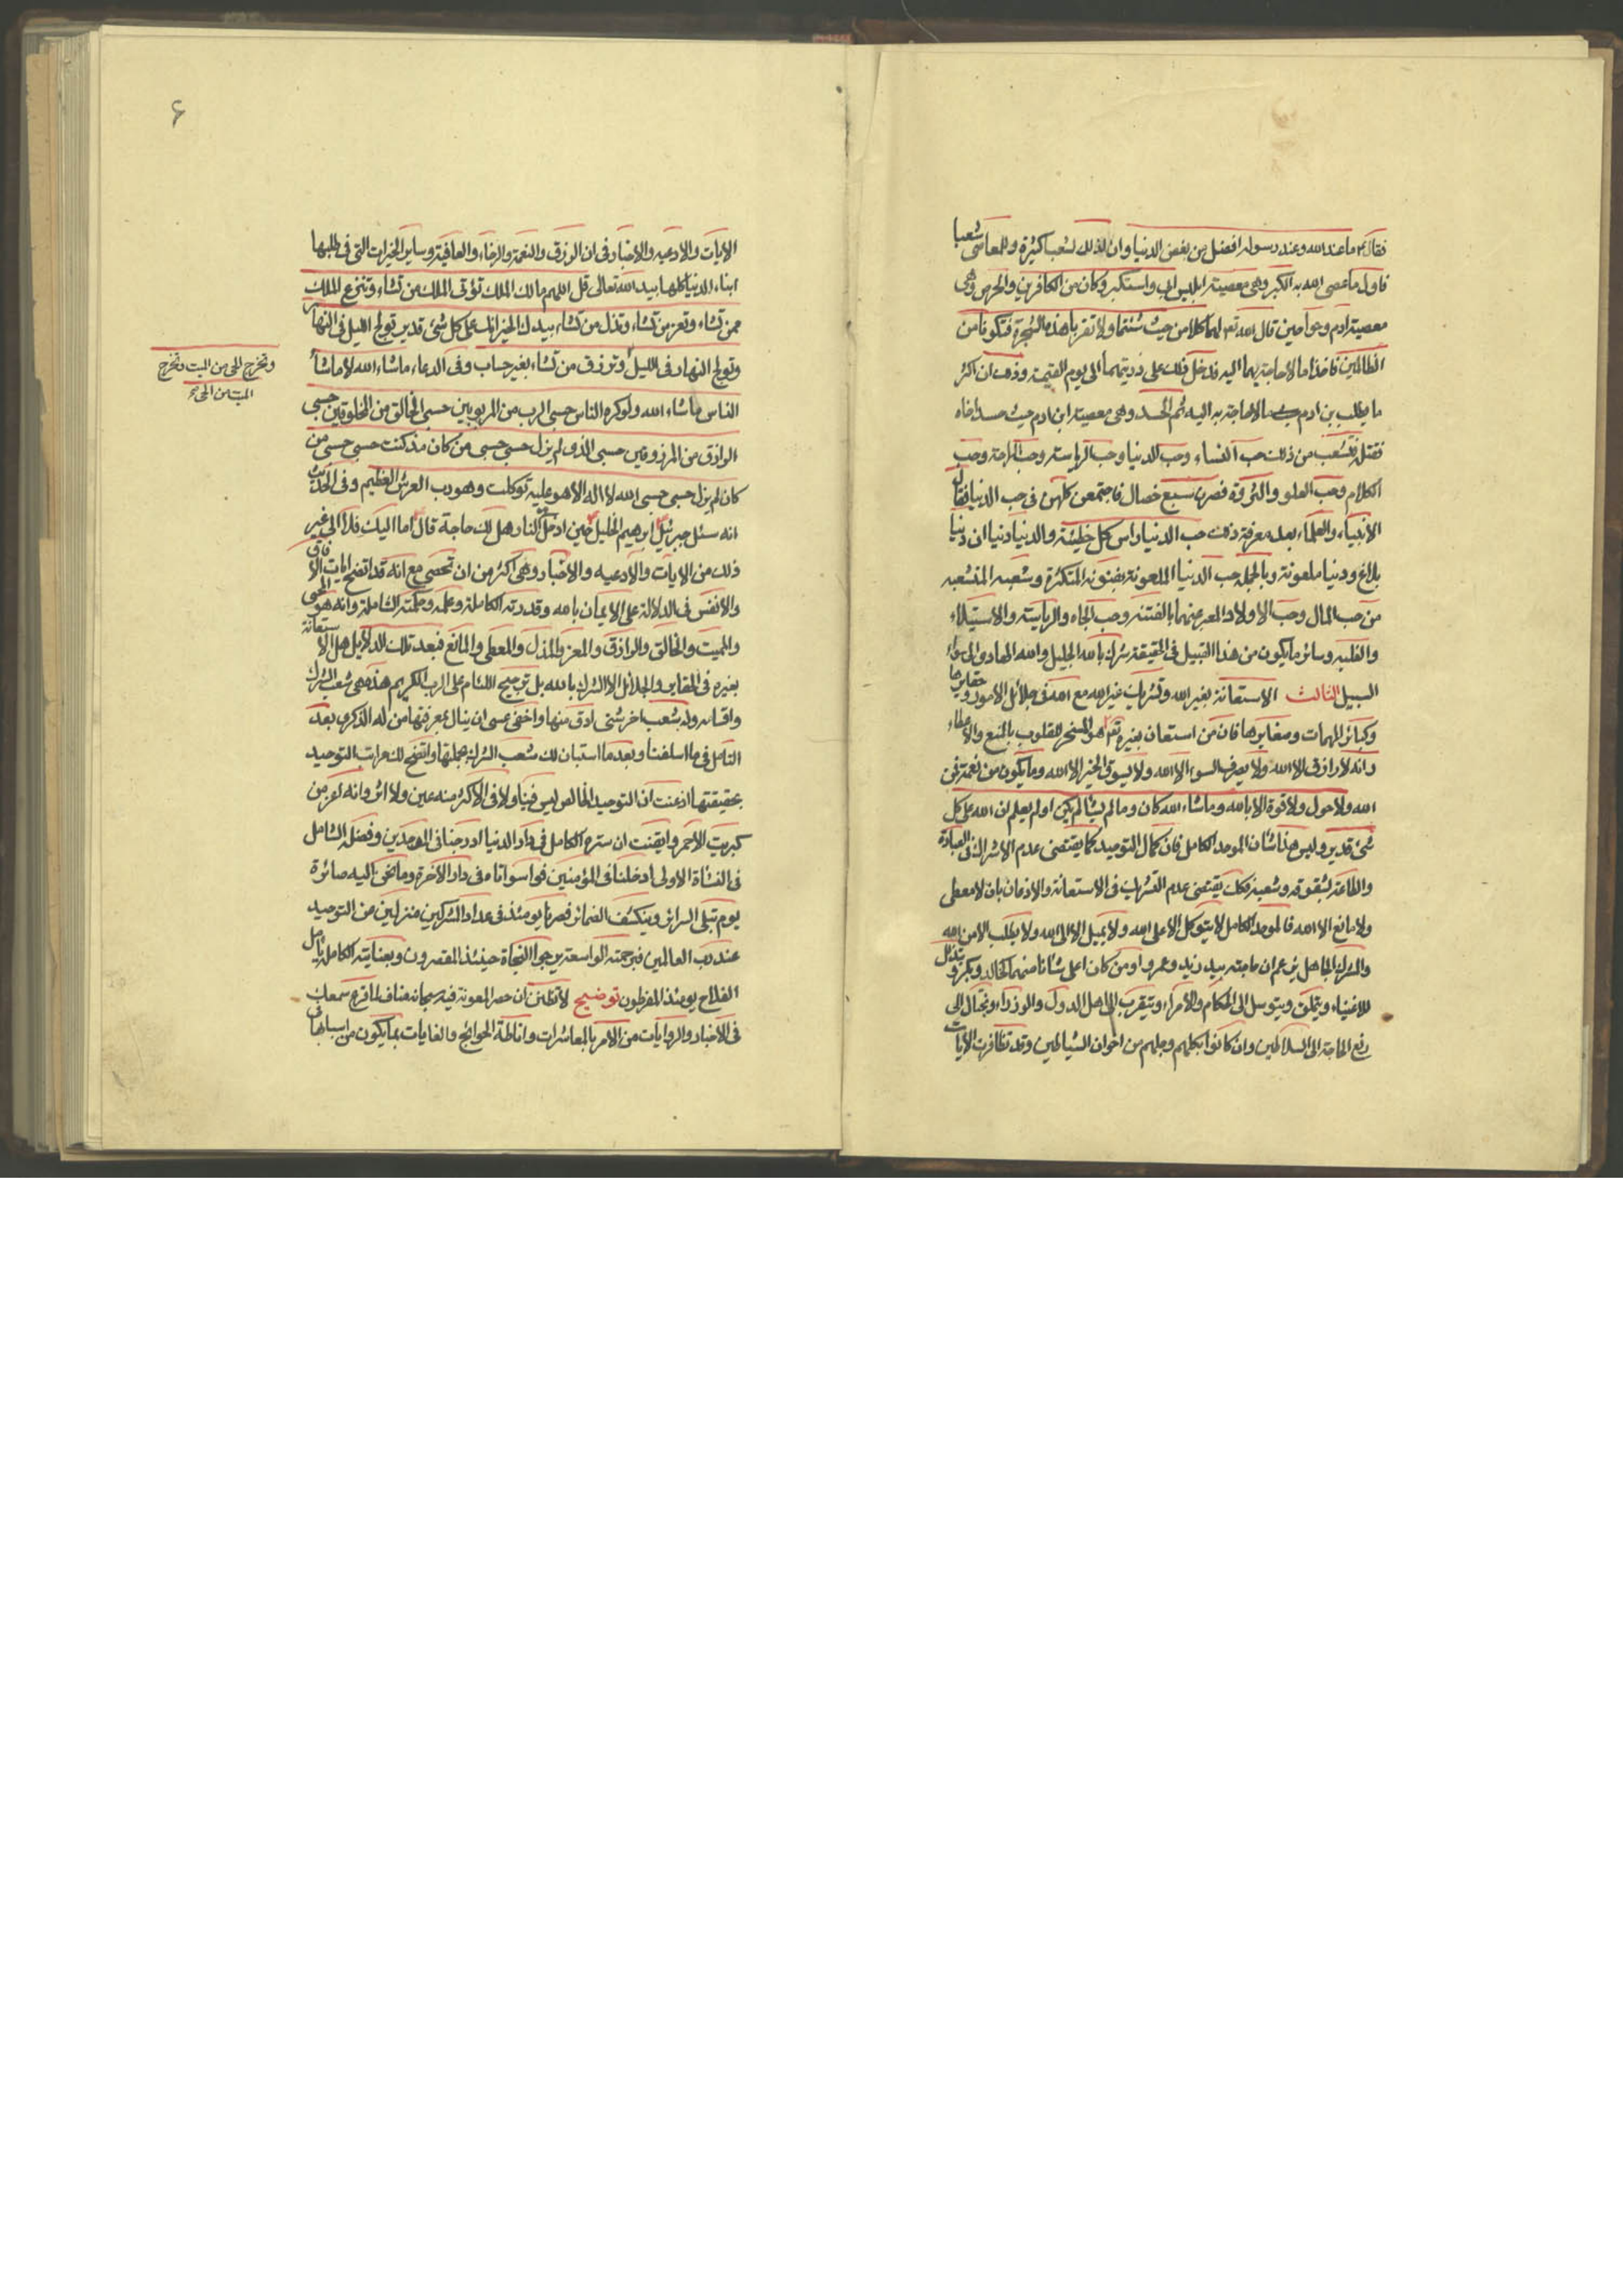 فقال ما عند الله وعند رسوله افضل من بغض الدنيا وان لذلك لشعبا كثيرة وللمعاصى شعبا
فاول ما عصى الله به الكبر وهى معصية ابليس ابى واستكبر وكان من الكافرين والحرص وهى
معصية ادم وحوا حين قال الله تعم لهما كلا من حيث شئتما ولا تقربا هذه الشجرة فتكونا من
الظالمين فاخذا ما لا حاجة بهما اليه فدخل ذلك على ذريتهما الى يوم القيمة وذلك ان اكثر
ما يطلب بن ادم ما لا حاجة به اليه ثم الحسد وهى معصية ابن ادم حيث حسد اخاه
فقتله فتشعب من ذلك حب النساء وحب الدنيا وحب الرياسة وحب الراحة وحب
الكلام وحب العلو والثروة فصرن سبع خصال فاجتمعن كلهن فى حب الدنيا فقال
الانبياء والعلماء بعد معرفة ذلك حب الدنيا راس كل خطيئة والدنيا دنيا ان دنيا
بلاغ ودنيا ملعونة وبالجملة حب الدنيا الملعونة بفنونه المتكثرة وشعبه المتشعبه
من حب المال وحب الاولاد المعبر عنهما بالفتنه وحب الجاه والرياسة والاستيلاء
والغلبه وسائر ما يكون من هذا القبيل فى الحقيقة شرك بالله الجليل والله الهادى الى سواء
السبيل الثالث الاستعانة بغير الله وتشريك غير الله مع الله فى جلائل الامور وحقايرها
وكبائر المهمات وصغايرها فان من استعان بغيره تعم هو المسخر للقلوب بالمنع والاعطاء
وانه لا رازق الا الله ولا يصرف السوء الا الله ولا يسوق الخير الا الله وما يكون من نعمة فمن
الله ولا حول ولا قوة الا بالله وما شاء الله كان وما لم يشا لم يكن اولم يعلم ان الله على كل
شئ قدير وليس هذا شان الموحد الكامل فان كمال التوحيد كما يقتضى عدم الاشراك فى العبادة
والطاعة لشقوقه وشعبه فكك يقتضى عدم التشريك فى الاستعانة والاذعان بان لا معطى
ولا مانع الا الله فالموحد الكامل لا يتوكل الا على الله ولا يميل الا الى الله ولا يطلب الا من الله
والمشرك الجاهل يزعم ان حاجته بيد زيد وعمرو او من كان اعلى شانا منهما كخالد وبكر ويتذلل
للاغنياء ويتملق ويتوسل الى الحكام والامراء ويتقرب الى اهل الدول والوزراء ويحتال الى
رفع الحاجة الى السلاطين وان كانوا بكلهم وجلهم من اخوان الشياطين وقد تظافرت الايات
۶
الايات والادعيه والاخبار فى ان الرزق والنعمة والرخاء والعافية وساير الخيرات التى فى طلبها
ابناء الدنيا كلها بيد الله تعالى قل اللهم مالك الملك تؤتى الملك من تشاء وتنزع الملك
ممن تشاء وتعز من تشاء وتذل من تشاء بيدك الخير انك على كل شئ قدير تولج الليل فى النهار
وتولج النهار فى الليل وترزق من تشاء بغير حساب وفى الدعاء ما شاء الله لا ما شاء
وتخرج الحى من الميت وتخرج
الميت من الحى صح
الناس ما شاء الله ولو كره الناس حسبى الرب من المربوبين حسبى الخالق من المخلوقين حسبى
الرازق من المرزوقين حسبى الذى لم يزل حسبى حسبى من كان مذ كنت حسبى حسبى من
كان لم يزل حسبى حسبى الله لا اله الا هو عليه توكلت وهو رب العرش العظيم وفى الحديث
انه سئل جبرئيل ابرهيم الخليل حين ادخل النار هل لك حاجة قال اما اليك فلا الى غير
ذلك من الايات والادعيه والاخبار وهى اكثر من ان تحصى مع انه قد اتضح ايات الافاق
والانفس فى الدلالة على الايمان بالله وقدرته الكاملة وعلمه وحكمته الشاملة وانه هو المحيى
والمميت والخالق والرازق والمعز والمذل والمعطى والمانع فبعد تلك الدلايل هل الاستعانة
بغيره فى الحقاير والجلائل الا الشرك بالله بل ترجيح اللئام على الرب الكريم هذه هى شعب الشرك
واقسامه وله شعب اخر شتى ادق منها واخفى عسى ان ينال بمعرفتها من له الذكرى بعد
التامل فى ما اسلفنا وبعد ما استبان لك شعب الشرك بجملتها واتضح لك مراتب التوحيد
بحقيقتها اذعنت ان التوحيد الخالص ليس فينا ولا فى الاكثر منه عين ولا اثر وانه اعز من
كبريت الاحمر وايقنت ان ستره الكامل فى دار الدنيا ادرجنا فى الموحدين وفضله الشامل
فى النشاة الاولى ادخلنا فى المؤمنين فوا سواتاه فى دار الاخرة وما نحن اليه صائرة
يوم تبلى السرائر وينكشف الضمائر فصرنا يومئذ فى عداد المشركين منزلين من التوحيد
عند رب العالمين فبرحمته الواسعة يرجوا النجاة حينئذ المقصرون وبعنايته الكاملة يامل
الفلاح يومئذ المفرطون توضيح لا تظنن ان حصر المعونة فيه سبحانه مناف لما قرع سمعك
فى الاخبار والروايات من الامر بالمعاشرات واناطة الحوائج والغايات بما يكون من اسبابها